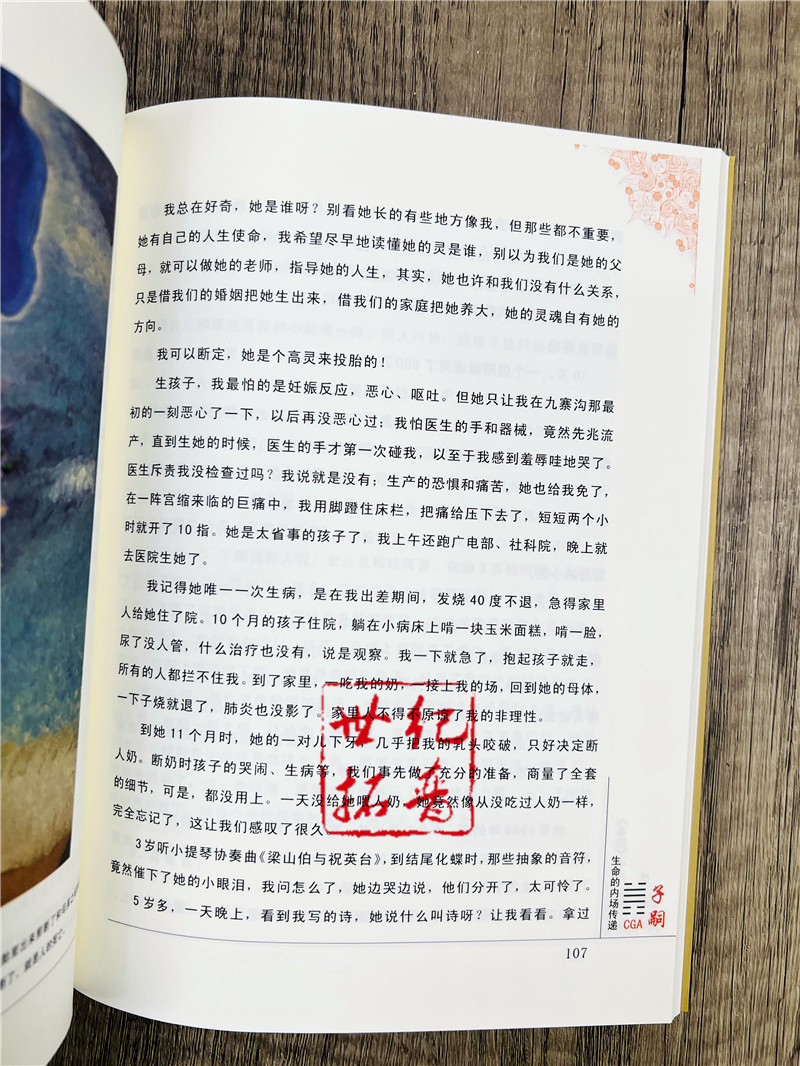 我总在好奇，她是谁呀？别看她长的有些地方像我，但那些都不重要，
她有自己的人生使命，我希望尽早地读懂她的灵是谁，别以为我们是她的父
母，就可以做她的老师，指导她的人生，其实，她也许和我们没有什么关系，
只是借我们的婚姻把她生出来，借我们的家庭把她养大，她的灵魂自有她的
方向。
我可以断定，她是个高灵来投胎的！
生孩子，我最怕的是妊娠反应，恶心、呕吐。但她只让我在九寨沟那最
初的一刻恶心了一下，以后再没恶心过；我怕医生的手和器械，竟然先兆流
产，直到生她的时候，医生的手才第一次碰我，以至于我感到羞辱哇地哭了。
医生斥责我没检查过吗？我说就是没有；生产的恐惧和痛苦，她也给我免了，
在一阵宫缩来临的巨痛中，我用脚蹬住床栏，把痛给压下去了，短短两个小
时就开了10指。她是太省事的孩子了，我上午还跑广电部、社科院，晚上就
去医院生她了。
我记得她唯一一次生病，是在我出差期间，发烧40度不退，急得家里
人给她住了院。10个月的孩子住院，躺在小病床上啃一块玉米面糕，啃一脸，
尿了没人管，什么治疗也没有，说是观察。我一下就急了，抱起孩子就走，
所有的人都拦不住我。到了家里，一吃我的奶，一接上我的场，回到她的母体，
一下子烧就退了，肺炎也没影了。家里人不得不原谅了我的非理性。
到她11个月时，她的一对儿下牙，几乎把我的乳头咬破，只好决定断
人奶。断奶时孩子的哭闹、生病等，我们事先做了充分的准备，商量了全套
的细节，可是，都没用上。一天没给她喂人奶，她竟然像从没吃过人奶一样，
完全忘记了，这让我们感叹了很久
3岁听小提琴协奏曲《梁山伯与祝英台》，到结尾化蝶时，那些抽象的音符，
竟然催下了她的小眼泪，我问怎么了，她边哭边说，他们分开了，太可怜了。
5岁多，一天晚上，看到我写的诗，她说什么叫诗呀？让我看看。拿过
世纪
拓普
生命的内场传递
CGA
子嗣
107